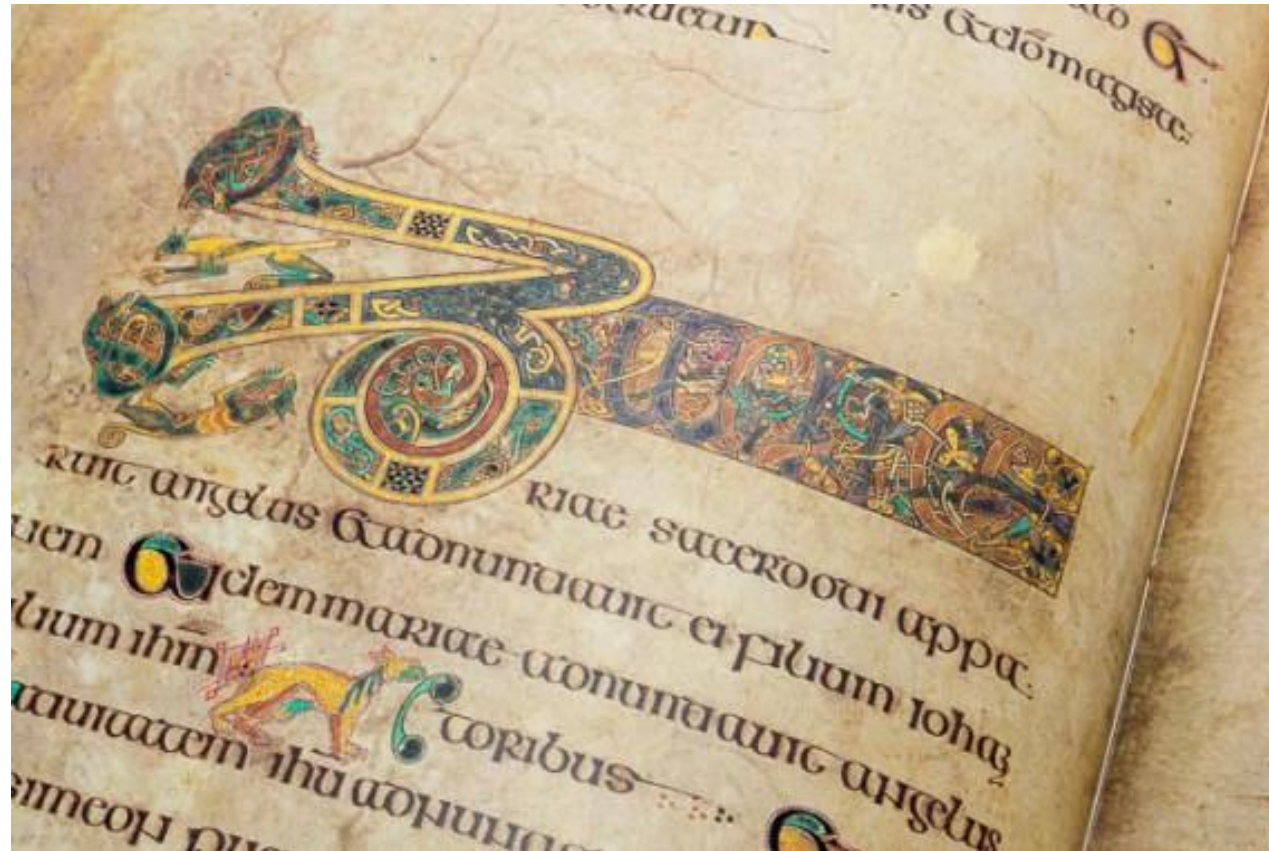 ZACHA
riae sacerdoti appa
ruit angelus et adnuntiauit ei filium ioha
uem et idem mariae adnuntiauit angelus
lium ihm toribus
uitatem ihu adnun
simeon pue